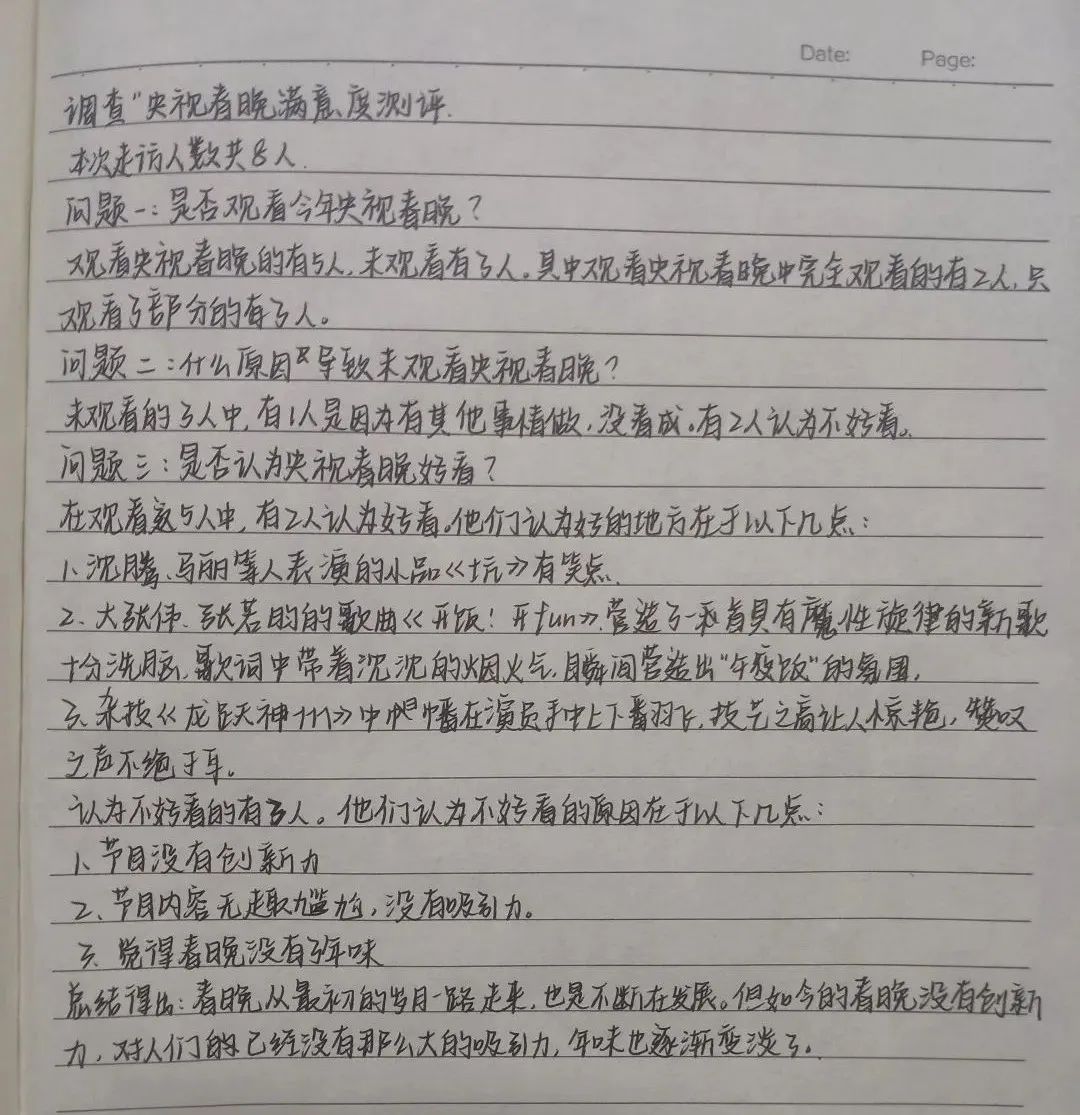 Date: Page:
调查"央视春晚满意度测评.
本次走访人数共8人.
问题一:是否观看今年央视春晚?
观看央视春晚的有5人,未观看有3人。其中观看央视春晚中完全观看的有2人,只
观看了部分的有3人。
问题二:什么原因导致未观看央视春晚?
未观看的3人中,有1人是因为有其他事情做,没看成。有2人认为不好看。
问题三:是否认为央视春晚好看?
在观看的5人中,有2人认为好看。他们认为好的地方在于以下几点:
1、沈腾、马丽等人表演的小品《坑》有笑点.
2、大张伟、张若昀的歌曲《开饭!开fun》.营造了一种具有魔性旋律的新歌
十分洗脑,歌词中带着沉沉的烟火气,瞬间营造出"年夜饭"的氛围,
3、杂技《龙跃神川》中中幡在演员手中上下翻飞,技艺之高让人惊艳,赞叹
之声不绝于耳。
认为不好看的有3人。他们认为不好看的原因在于以下几点:
1、节目没有创新力
2、节目内容无趣尴尬,没有吸引力。
3、觉得春晚没有了年味
总结得出:春晚从最初的岁月一路走来,也是不断在发展。但如今的春晚没有创新
力,对人们的已经没有那么大的吸引力,年味也逐渐变淡了。